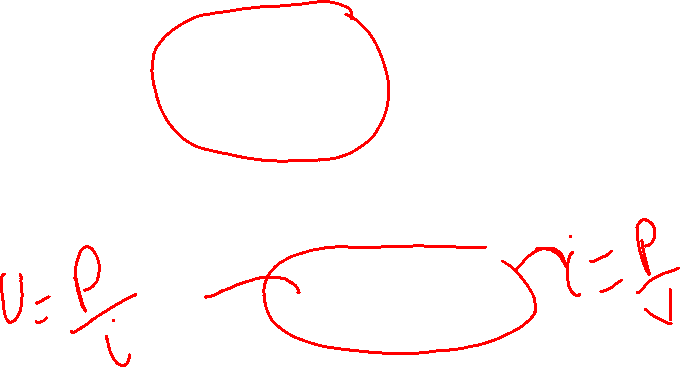 U = P/i
i = P/